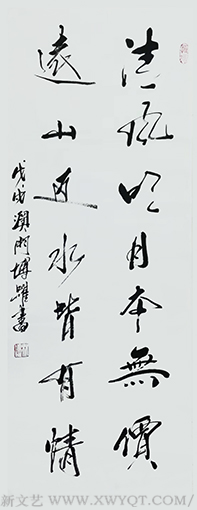 清风明月本無價
遠山近水皆有情
戊戌澳門博躍書
新文艺 WWW.XWYQT.COM/